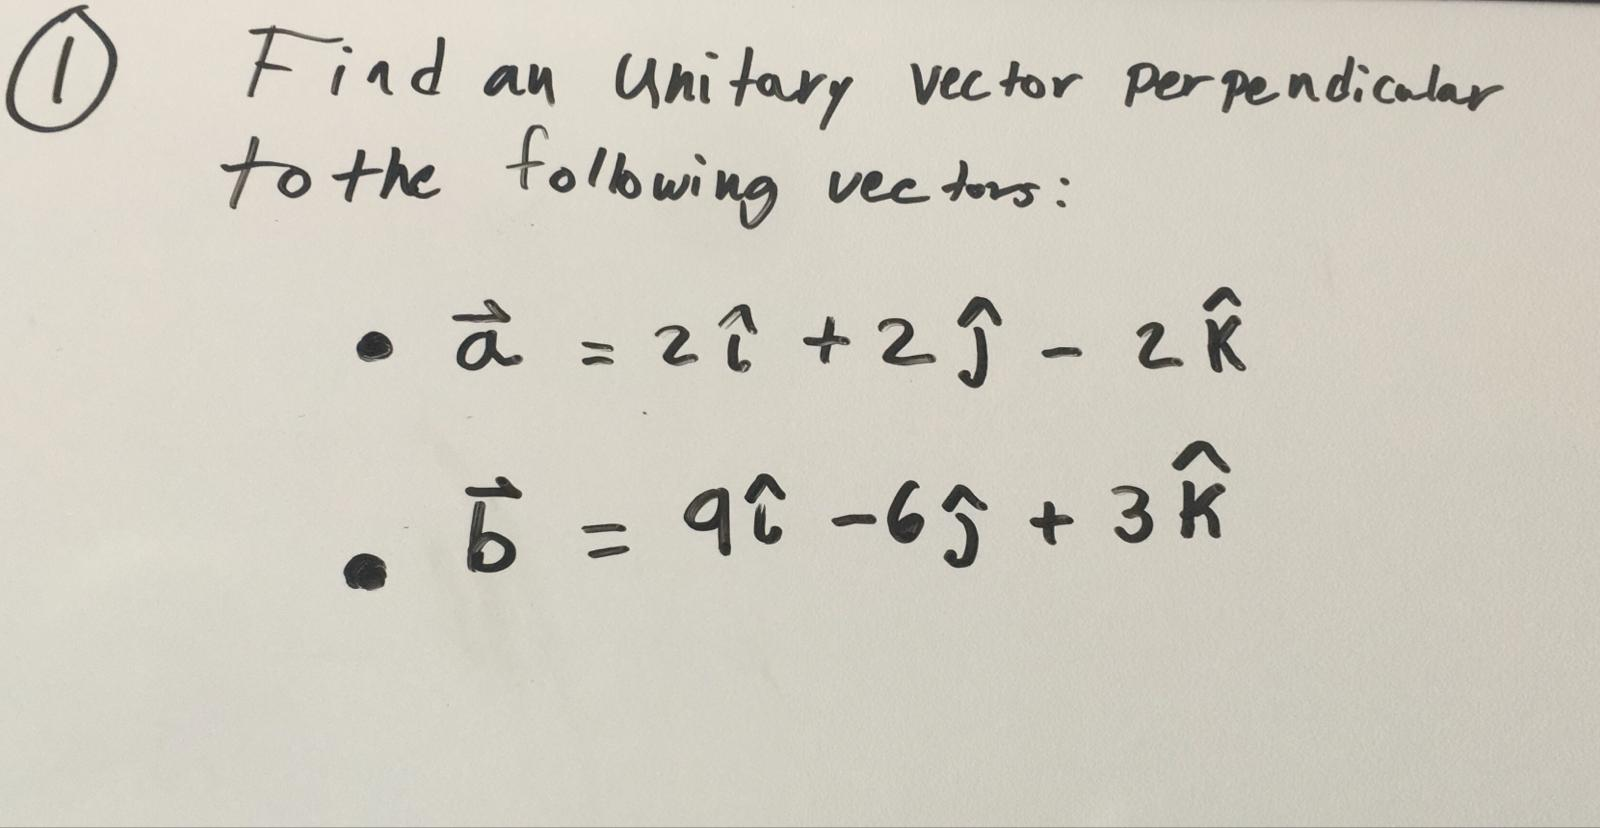 ① Find an unitary vector perpendicular
to the following vectors:
• a⃗ = 2î + 2ĵ - 2k̂
• b⃗ = 9î - 6ĵ + 3k̂